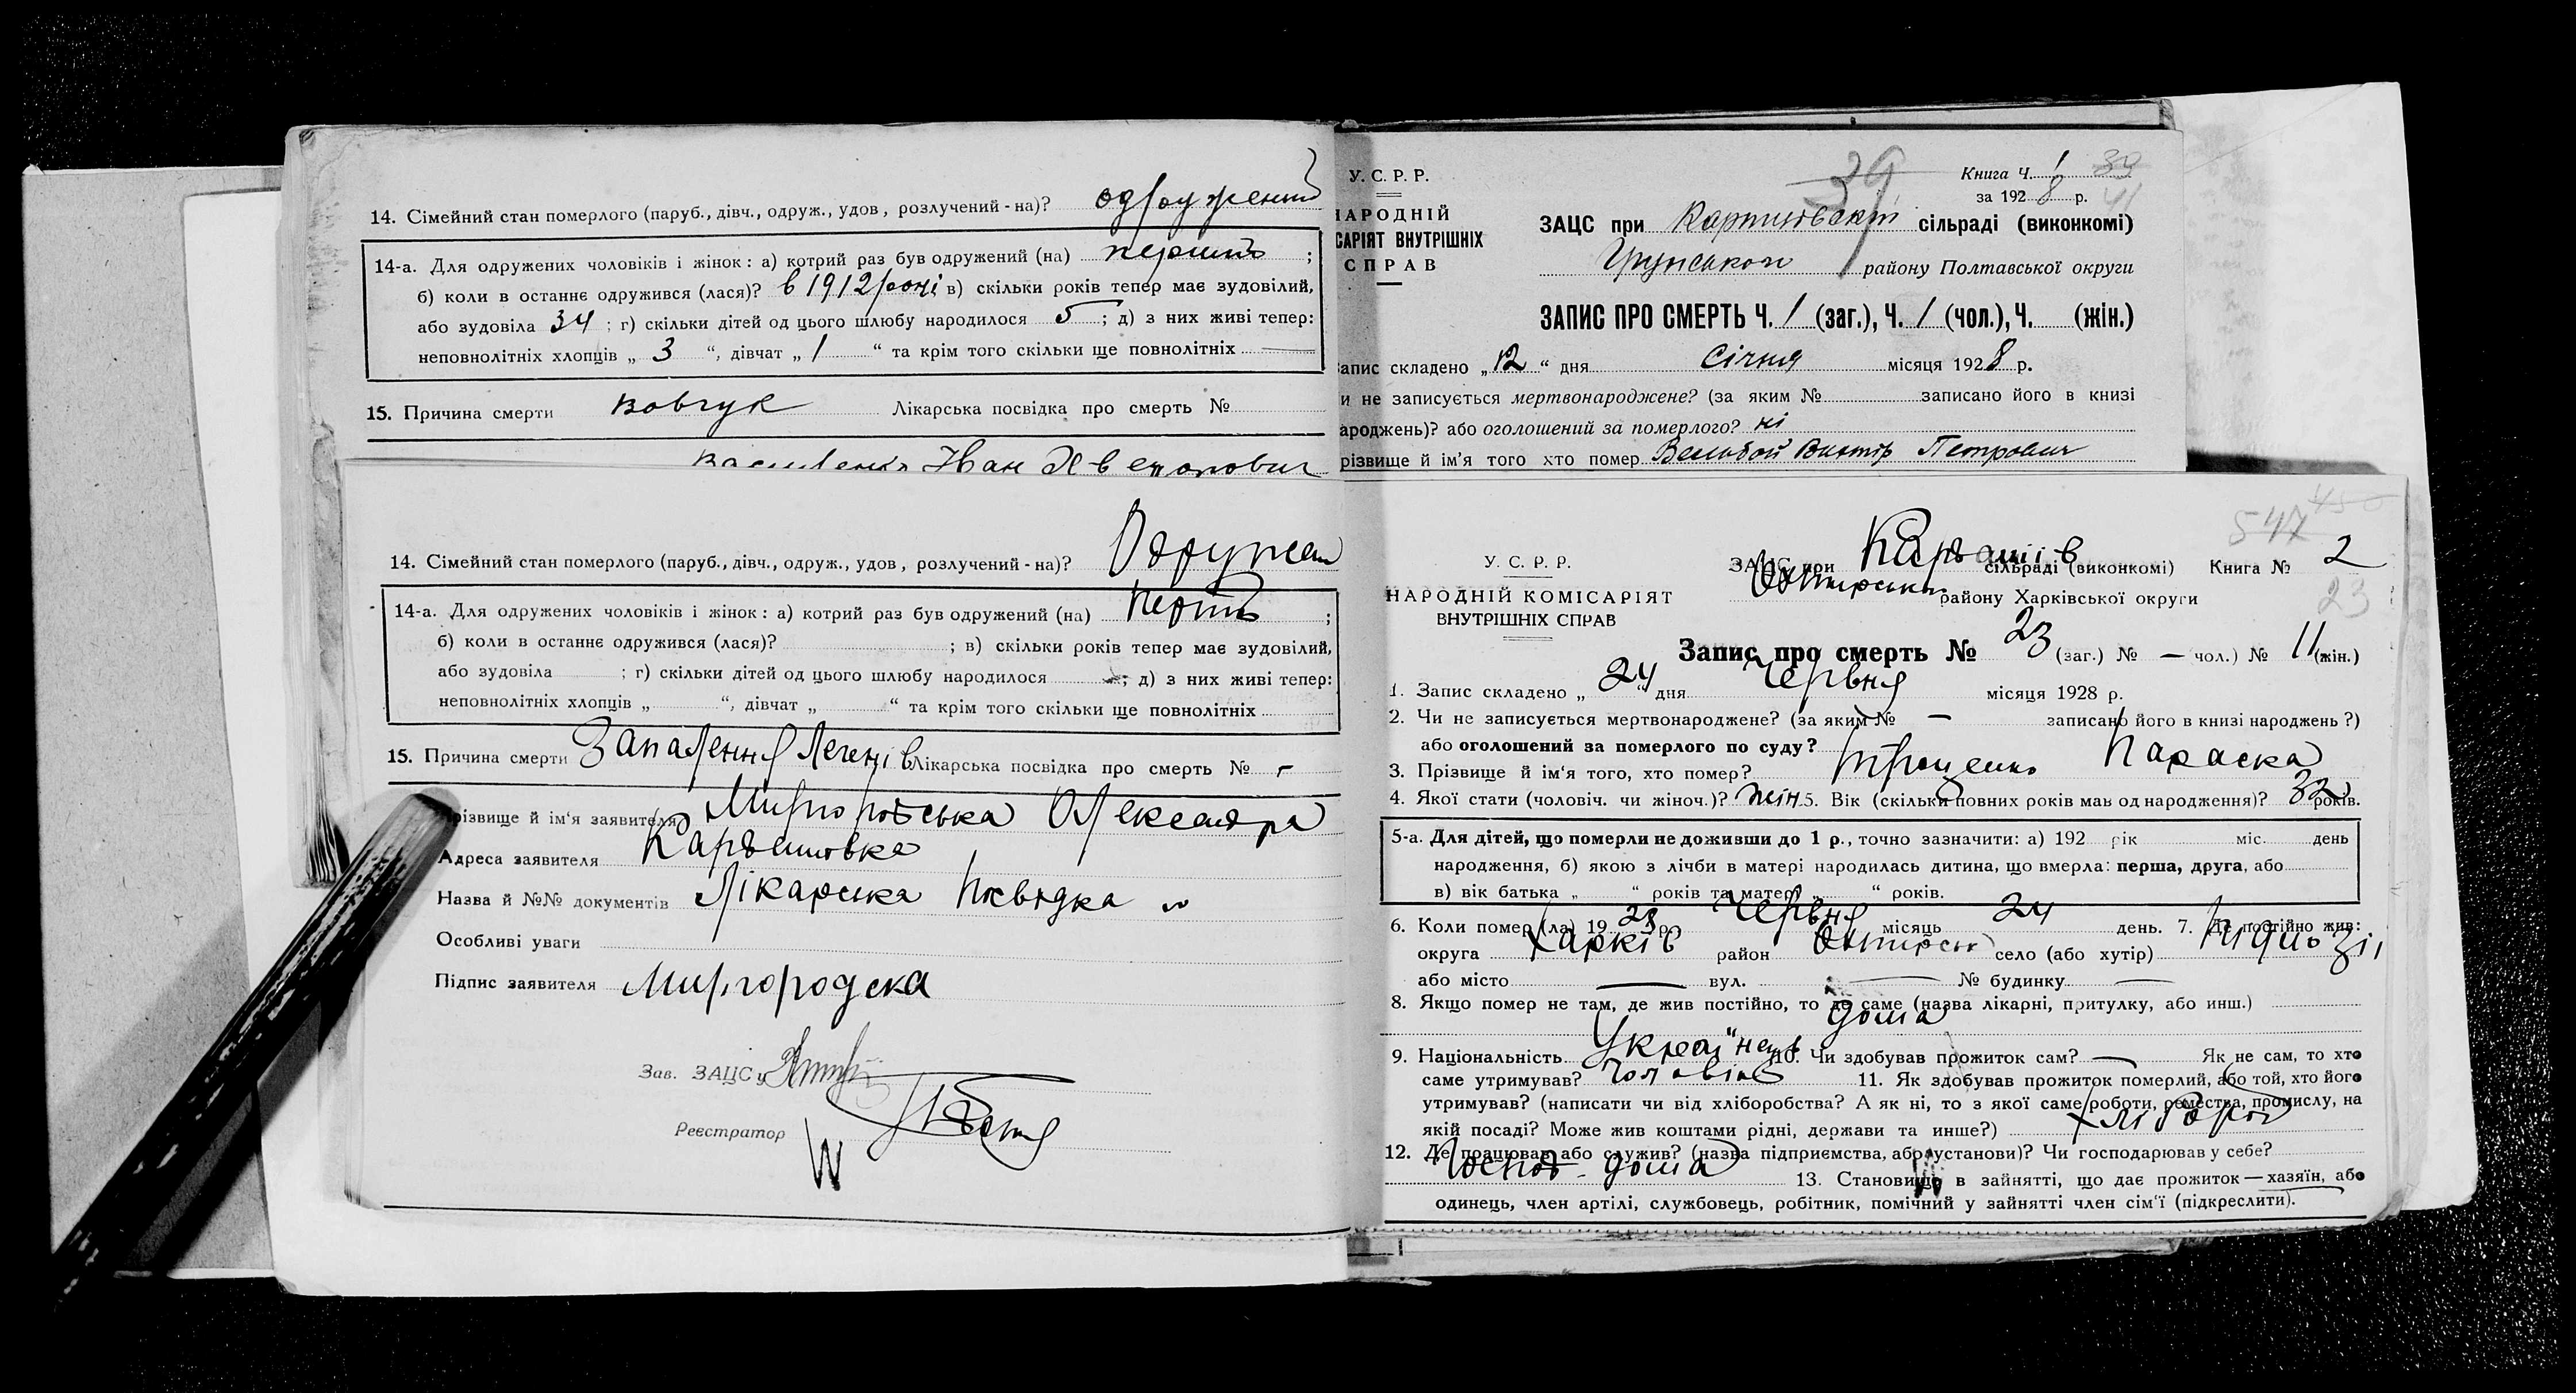 14. Сімейний стан померлого (паруб., дівч., одруж., удов, розлучений - на)? одружений
14-а. Для одружених чоловіків і жінок: а) котрий раз був одружений (на) перший ;
б) коли в останнє одружився (лася)? в 1912 році в) скільки років тепер має зудовілий,
або зудовіла 34 ; г) скільки дітей од цього шлюбу народилося 5 ; д) з них живі тепер:
неповнолітніх хлопців „ 3 “, дівчат „ 1 “ та крім того скільки ще повнолітніх
15. Причина смерти вовчук Лікарська посвідка про смерть №
Іван
У. С. Р. Р.
АРОДНІЙ
САРІЯТ ВНУТРІШНІХ
СПРАВ
39
Книга Ч. 1
за 1928 р.
41
ЗАЦС при сільраді (виконкомі)
району Полтавської округи
ЗАПИС ПРО СМЕРТЬ Ч. 1 (заг.), Ч. 1 (чол.), Ч. (жін.)
апис складено „ 12 “ дня Січня місяця 1928 р.
и не записується мертвонароджене? (за яким № записано його в книзі
ароджень)? або оголошений за померлого? ні
різвище й ім'я того хто помер Петрович
14. Сімейний стан померлого (паруб., дівч., одруж., удов, розлучений - на)?
14-а. Для одружених чоловіків і жінок: а) котрий раз був одружений (на) ;
б) коли в останнє одружився (лася)? ; в) скільки років тепер має зудовілий,
або зудовіла ; г) скільки дітей од цього шлюбу народилося ; д) з них живі тепер:
неповнолітніх хлопців „ “, дівчат „ “ та крім того скільки ще повнолітніх
15. Причина смерти Запалення Легенів Лікарська посвідка про смерть № -
різвище й ім'я заявителя Олександра
Адреса заявителя Кардашовка
Назва й №№ документів Лікарська Посвідка
Особливі уваги
Підпис заявителя Миргородска
Зав. ЗАЦС'у
Реєстратор
547
У. С. Р. Р.
НАРОДНІЙ КОМІСАРІЯТ
ВНУТРІШНІХ СПРАВ
ЗАЦС при Кардашів сільраді (виконкомі) Книга № 2
Охтирськ району Харківської округи
23
Запис про смерть № 23 (заг.) № — чол.) № 11 (жін.)
1. Запис складено „ 24 “ дня Червня місяця 1928 р.
2. Чи не записується мертвонароджене? (за яким № — записано його в книзі народжень?)
або оголошений за померлого по суду?
3. Прізвище й ім'я того, хто помер? Параска
4. Якої стати (чоловіч. чи жіноч.)? жін. 5. Вік (скільки повних років мав од народження)? 32 років.
5-а. Для дітей, що померли не доживши до 1 р., точно зазначити: а) 192 рік міс. день
народження, б) якою з лічби в матері народилась дитина, що вмерла: перша, друга, або
в) вік батька „ “ років та матері „ “ років.
6. Коли помер (ла) 19 р. Червня місяць 24 день. 7. Де постійно жив:
округа Харків район Охтирськ село (або хутір)
або місто — вул. — № будинку —
8. Якщо помер не там, де жив постійно, то де саме (назва лікарні, притулку, або инш.)
дома
9. Національність 10. Чи здобував прожиток сам? — Як не сам, то хто
саме утримував? Чоловік 11. Як здобував прожиток померлий, або той, хто його
утримував? (написати чи від хліборобства? А як ні, то з якої саме роботи, ремества, промислу, на
якій посаді? Може жив коштами рідні, держави та инше?)
12. Де працював або служив? (назва підприємства, або установи)? Чи господарював у себе?
Господ. дома 13. Становище в зайнятті, що дає прожиток — хазяїн, або
одинець, член артілі, службовець, робітник, помічний у зайнятті член сім'ї (підкреслити).